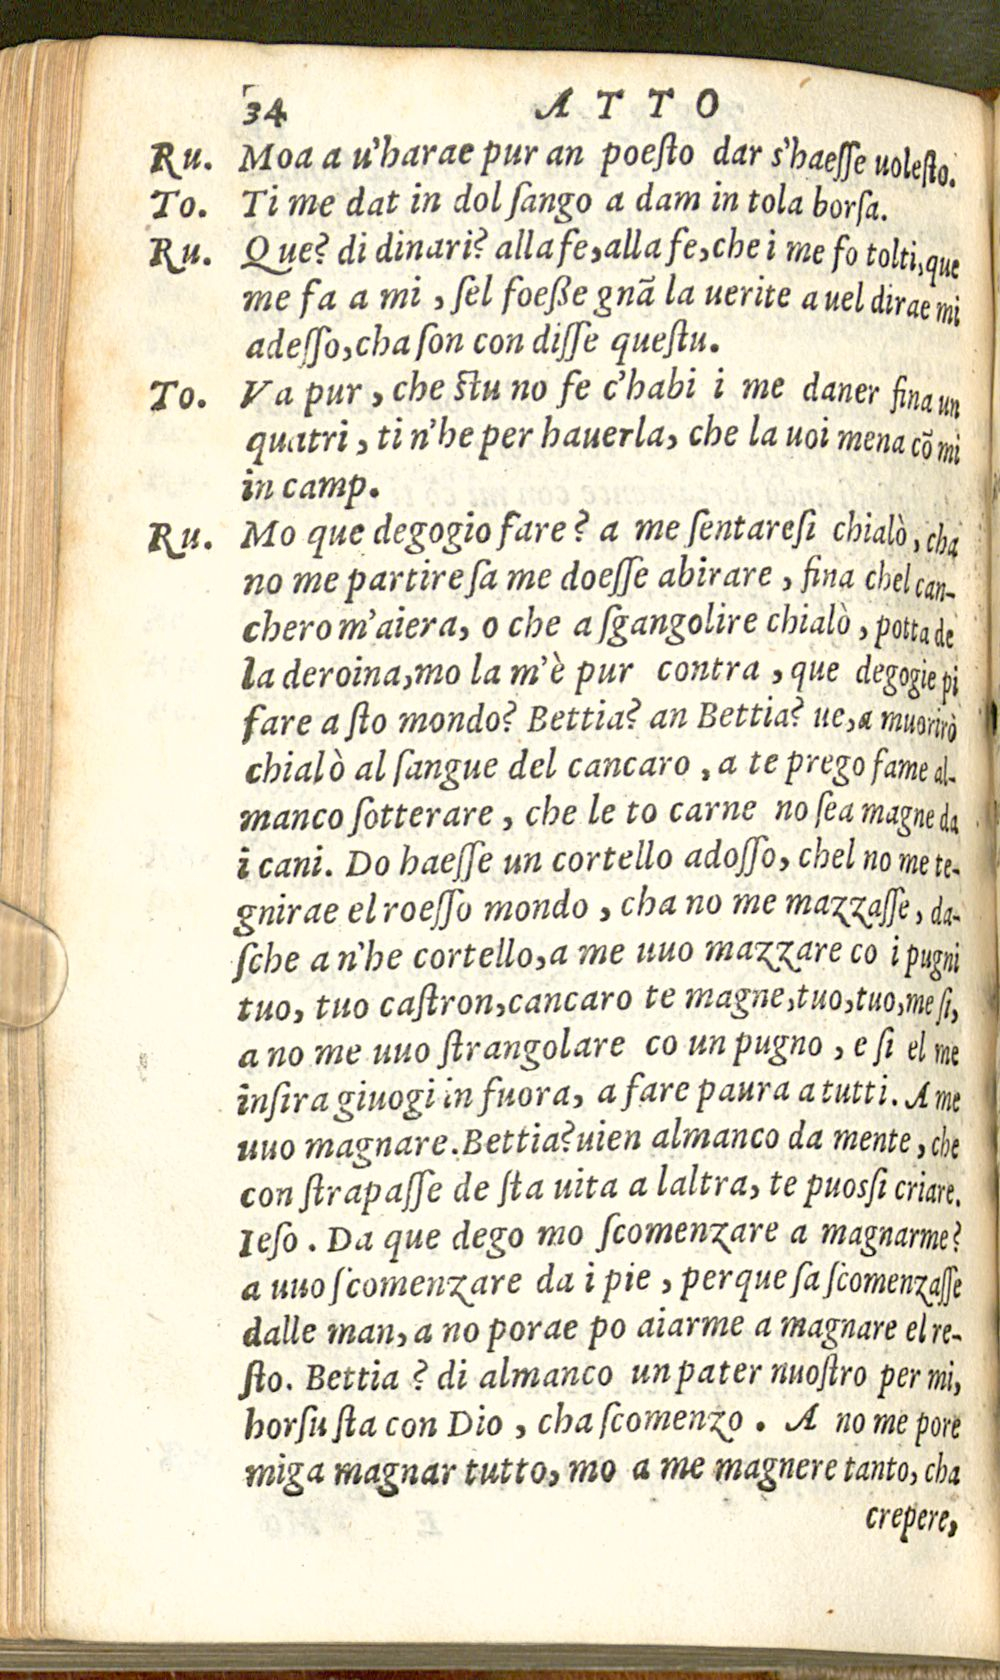 34 ATTO
Ru. Moa a u'harae pur an poeſto dar s'haeſſe uoleſto.
To. Ti me dat in dol ſango a dam in tola borſa.
Ru. Que? di dinari? alla fe, alla fe, che i me fo tolti, que
me fa a mi, ſel foeße gnã la uerite a uel dirae mi
adeſſo, cha ſon con diſſe queſtu.
To. Va pur, che ſtu no fe c'habi i me daner fina un
quatri, ti n'he per hauerla, che la uoi mena cõ mi
in camp.
Ru. Mo que degogio fare? a me ſentareſi chialò, cha
no me partire ſa me doeſſe abirare, fina chel can-
chero m'aiera, o che a ſgangolire chialò, potta de
la deroina, mo la m'è pur contra, que degogie pi
fare a ſto mondo? Bettia? an Bettia? ue, a muorirò
chialò al ſangue del cancaro, a te prego fame al-
manco ſotterare, che le to carne no ſea magne da
i cani. Do haeſſe un cortello adoſſo, chel no me te-
gnirae el roeſſo mondo, cha no me mazzaſſe, da-
ſche a n'he cortello, a me uuo mazzare co i pugni
tuo, tuo caſtron, cancaro te magne, tuo, tuo, me ſi,
a no me uuo ſtrangolare co un pugno, e ſi el me
inſira giuogi in fuora, a fare paura a tutti. A me
uuo magnare. Bettia? uien almanco da mente, che
con ſtrapaſſe de ſta uita a laltra, te puosſi criare.
Ieſo. Da que dego mo ſcomenzare a magnarme?
a uuo ſcomenzare da i pie, perque ſa ſcomenzaſſe
dalle man, a no porae po aiarme a magnare el re-
ſto. Bettia? di almanco un pater nuoſtro per mi,
horſu ſta con Dio, cha ſcomenzo. A no me pore
miga magnar tutto, mo a me magnere tanto, cha
crepere,